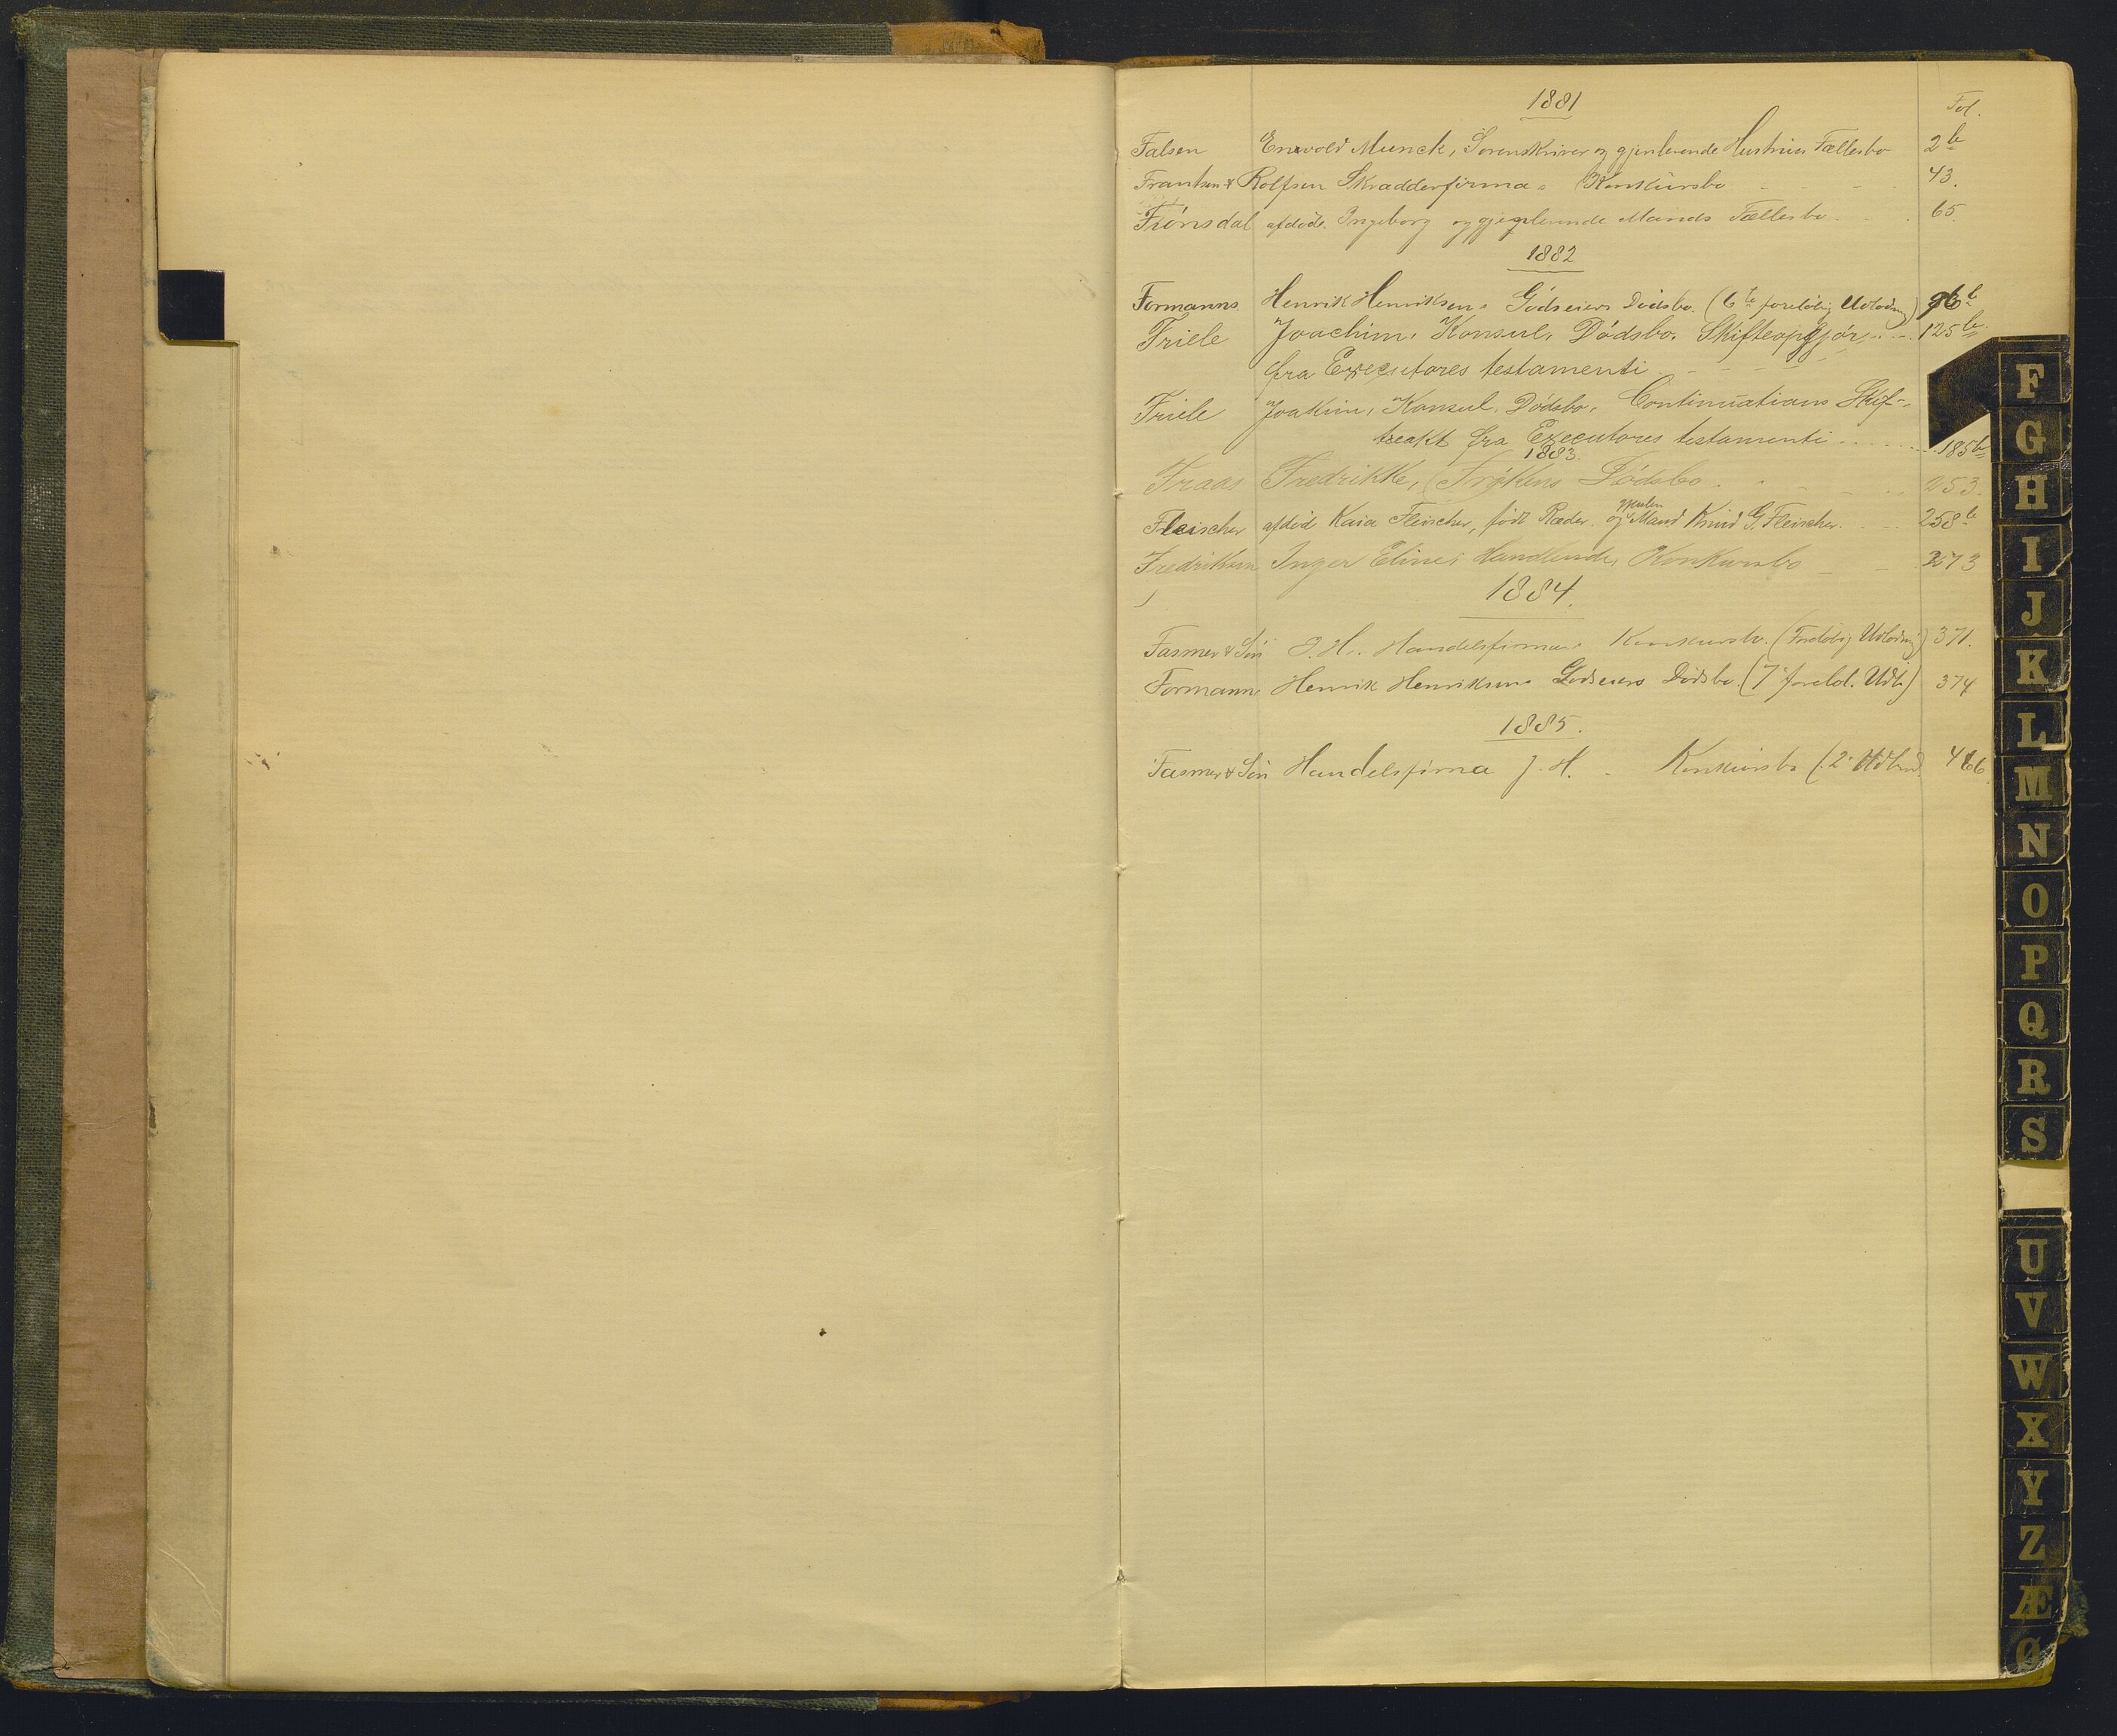 1881
Fol.
Falsen Enevold Munck, Sorenskriver og gjenlevende Hustrues Fællesbo 2b
Frantsen & Rolfsen Skrædderfirmas Konkursbo 43.
afdøde Ingeborg og gjenlevende Mands Fællesbo 65.
1882
Formanns Henrik Henriksens Gódseiers Dødsbo. (6te foreløbig Udlodning) 96b
Friele Joachim, Konsul, Dódsbo. Skifteopgjór 125b
fra Executores testamenti
Friele Joakim, Konsul, Dódsbo, Continuations Skif-
teakt fra Executores testamenti 185b
1883.
Fraas Fredrikke, Frókens Dódsbo. 253.
Fleischer afdóde Kaia Fleischer, født Ræder. og gjenlev Mand Knud G. Fleischer. 258b
Fredriksen Inger Eline, Handlende, Konkursbo 273
1884.
Fasmer & Són J. H. Handelsfirmas Konkursbo. (Foreløbig Udlodning) 371.
Formann Henrik Henriksens Godseiers Dødsbo. (7de foreløb. Udl.) 374
1885.
Fasmer & Són Handelsfirma J. H. Konkursbo (2. Udlodn 466.
F
G
H
I
J
K
L
M
N
O
P
Q
R
S
U
V
W
X
Y
Z
Æ
Ø